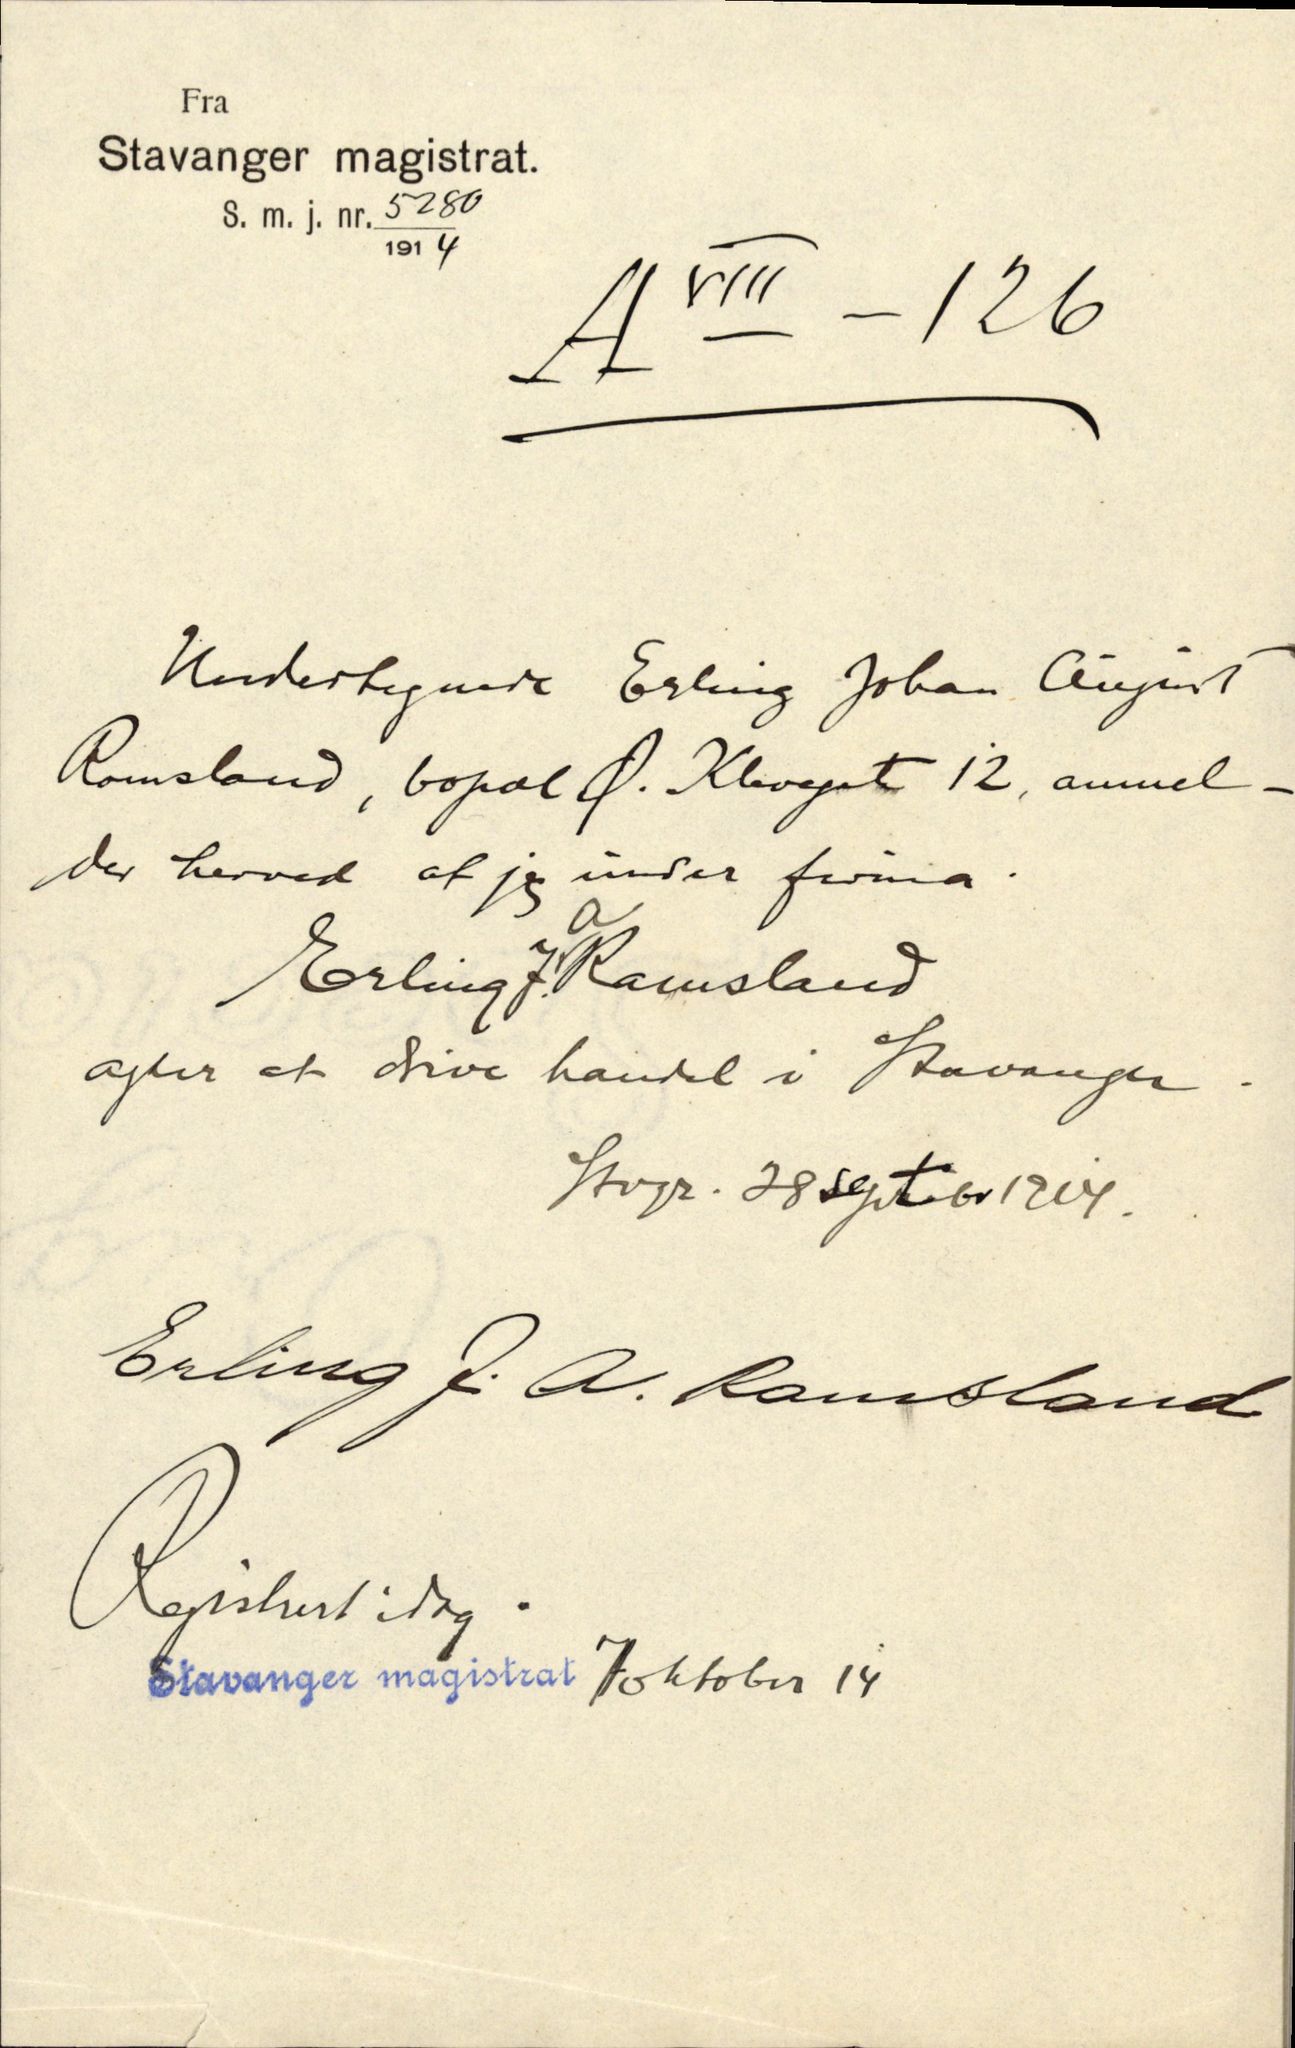 Fra
Stavanger magistrat.
S. m. j. nr. 5280
1914
A VIII - 126
Undertegnede Erling Johan August
Ramsland, bopæl Ø. Klevegt 12, anmel-
der herved at jeg under firma
Erling J. A Ramsland
agter at drive handel i Stavanger.
Stvgr. 28 septebr 1914.
Erling J. A. Ramsland
Registrert idag.
Stavanger magistrat 7 oktober 14